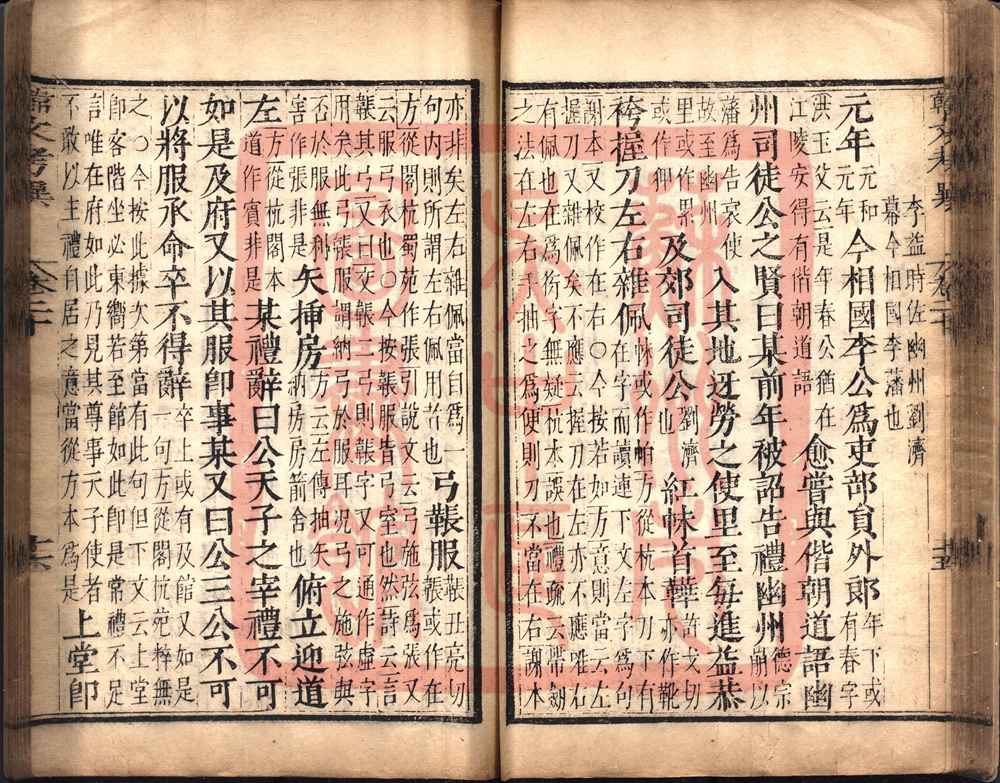 李益時佐幽州劉濟
幕今相國李藩也
元年元和元年今相國李公爲吏部員外郎年下或有春字
洪玉父云是年春公猶在江陵安得有偕朝道語愈嘗與偕朝道語幽
州司徒公之賢曰某前年被詔告禮幽州德宗崩以
藩爲告哀使故至幽州入其地迓勞之使里至每進益恭
里或作界或作仰及郊司徒公劉濟也紅帓首鞾許戈切亦作靴
袴握刀左右雜佩帓或作帕方從杭本刀下有在字而讀連下文左字爲句
謝本又校作在右○今按若如方意則當云左握刀又雜佩矣不應云握刀在左亦不應唯右
有佩也在爲衍字無疑杭本誤也禮疏云帶劒之法在左右手抽之爲便則刀不當在右謝本
亦非矣左右雜佩當自爲一句內則所謂左右佩用者也弓韔服韔丑亮切韔或作在
方從閣杭蜀苑作張引說文云弓施弦爲張又云服弓衣也○今按韔服皆弓室也然詩云言
韔其弓又曰交韔二弓則韔字又可通作虛字用矣此弓韔服謂納弓於服耳況弓之施弦與
否於服無利害作張非是矢揷房方云左傳抽矢納房房箭舍也俯立迎道
左方從閣杭本道作賓非是某禮辭曰公天子之宰禮不可
如是及府又以其服卽事某又曰公三公不可
以將服承命卒不得辭卒上或有及館又如是一句方從閣杭苑粹無
之○今按此據次第當有此句但下文云上堂卽客階坐必東嚮若至館如此卽是常禮不足
言唯在府如此乃見其尊事天子使者不敢以主禮自居之意當從方本爲是上堂卽